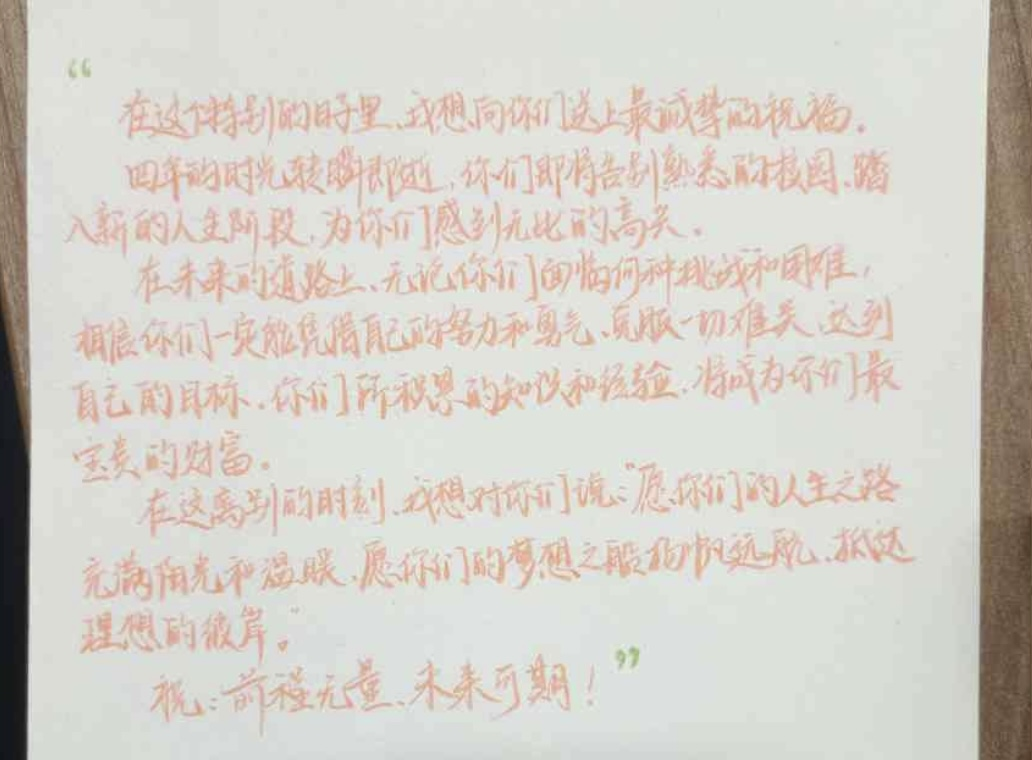 “
在这个特别的日子里、我想向你们送上最诚挚的祝福。
四年的时光转瞬即逝，你们即将告别熟悉的校园、踏
入新的人生阶段，为你们感到无比的高兴。
在未来的道路上、无论你们面临何种挑战和困难，
相信你们一定能凭借自己的努力和勇气、克服一切难关、达到
自己的目标、你们所积累的知识和经验，将成为你们最
宝贵的财富。
在这离别的时刻、我想对你们说：“愿你们的人生之路
充满阳光和温暖、愿你们的梦想之船扬帆远航、抵达
理想的彼岸。”
祝：前程无量、未来可期！”